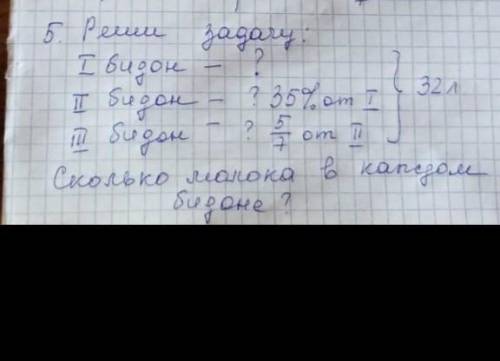 5. Реши задачу:
I бидон - ?
II бидон - ? 35% от I } 32л
III бидон - ? 5/7 от II
Сколько молока в каждом
бидоне?